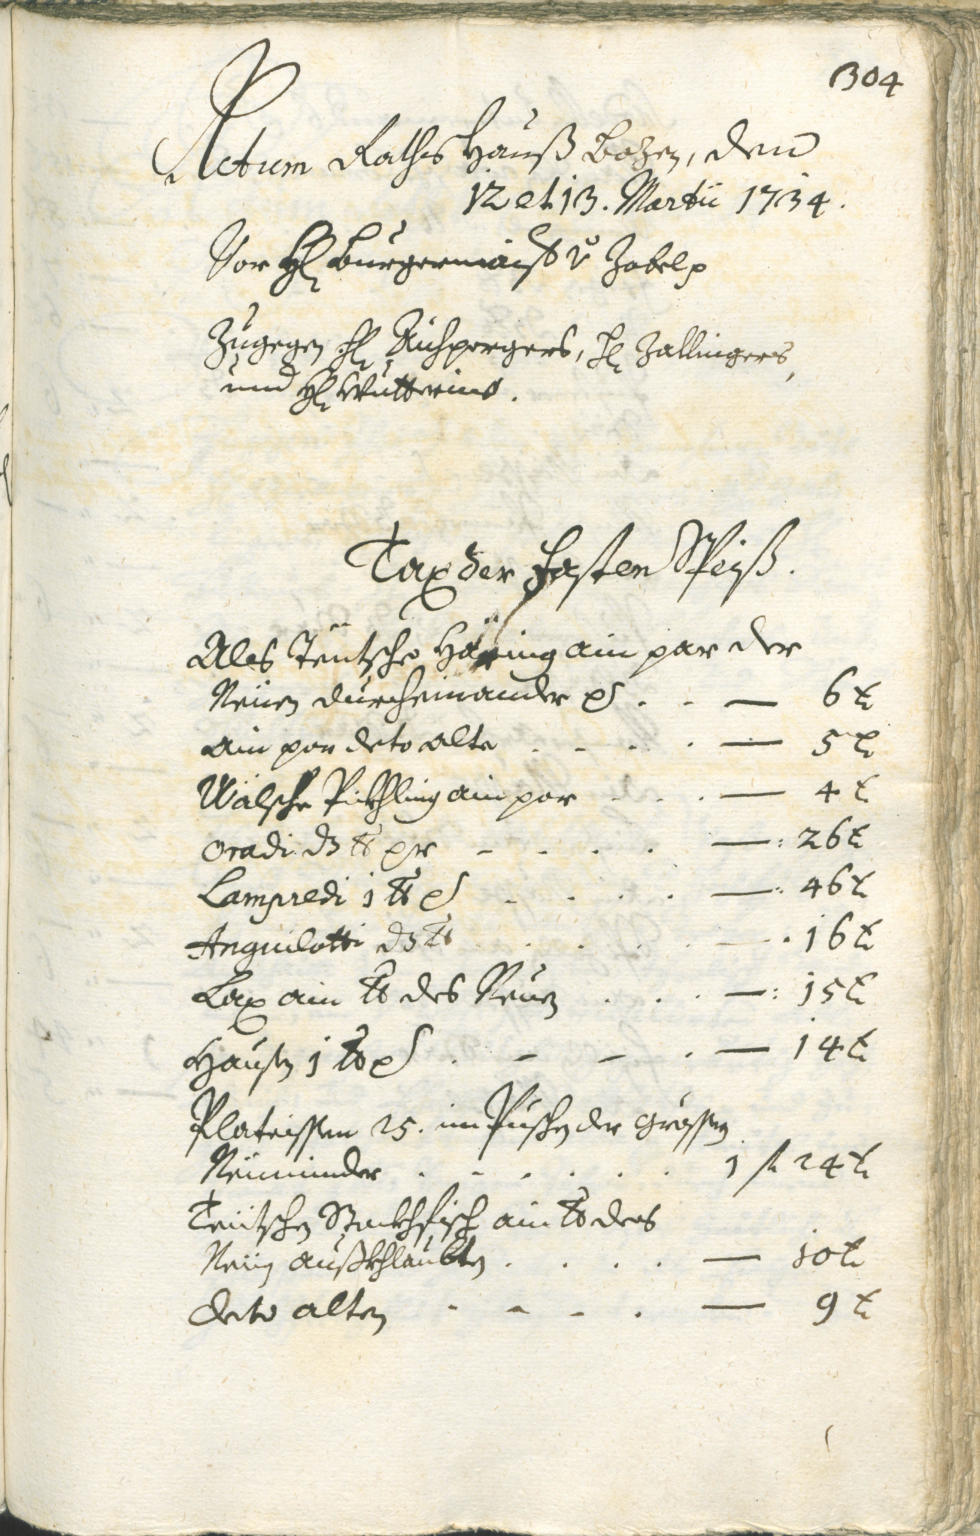 304
Actum Rathshauß Bozen, den
12 et 13. Martii 1734.
Vor H: Burgermaist: v Zobel p
Zugegen H: Aichpergers, H: Zallingers,
und H: Mutterins.
Tax der Fasten Speiß.
Als Teütsche Häring ain par der
Neüen durcheinander p . . — 6 x
ain par deto alte . . . . — 5 x
Wälsche Pickhling ain par . . . — 4 x
oradi ds lb per . . . . — : 26 x
Lampredi 1 lb p . . . . — : 46 x
Anguilotti ds lb . . . . — . 16 x
Lax ain lb des Neuen . . . — : 15 x
Hausen 1 lb p . . . . — 14 x
Plateissen 25. im Puschen der grossen
Neüminder . . . . . . 1 f 24 x
Teütschen Stockhfisch ain lb des
Neüen außkhlaubten . . . . — 10 x
deto alten . . . . — 9 x